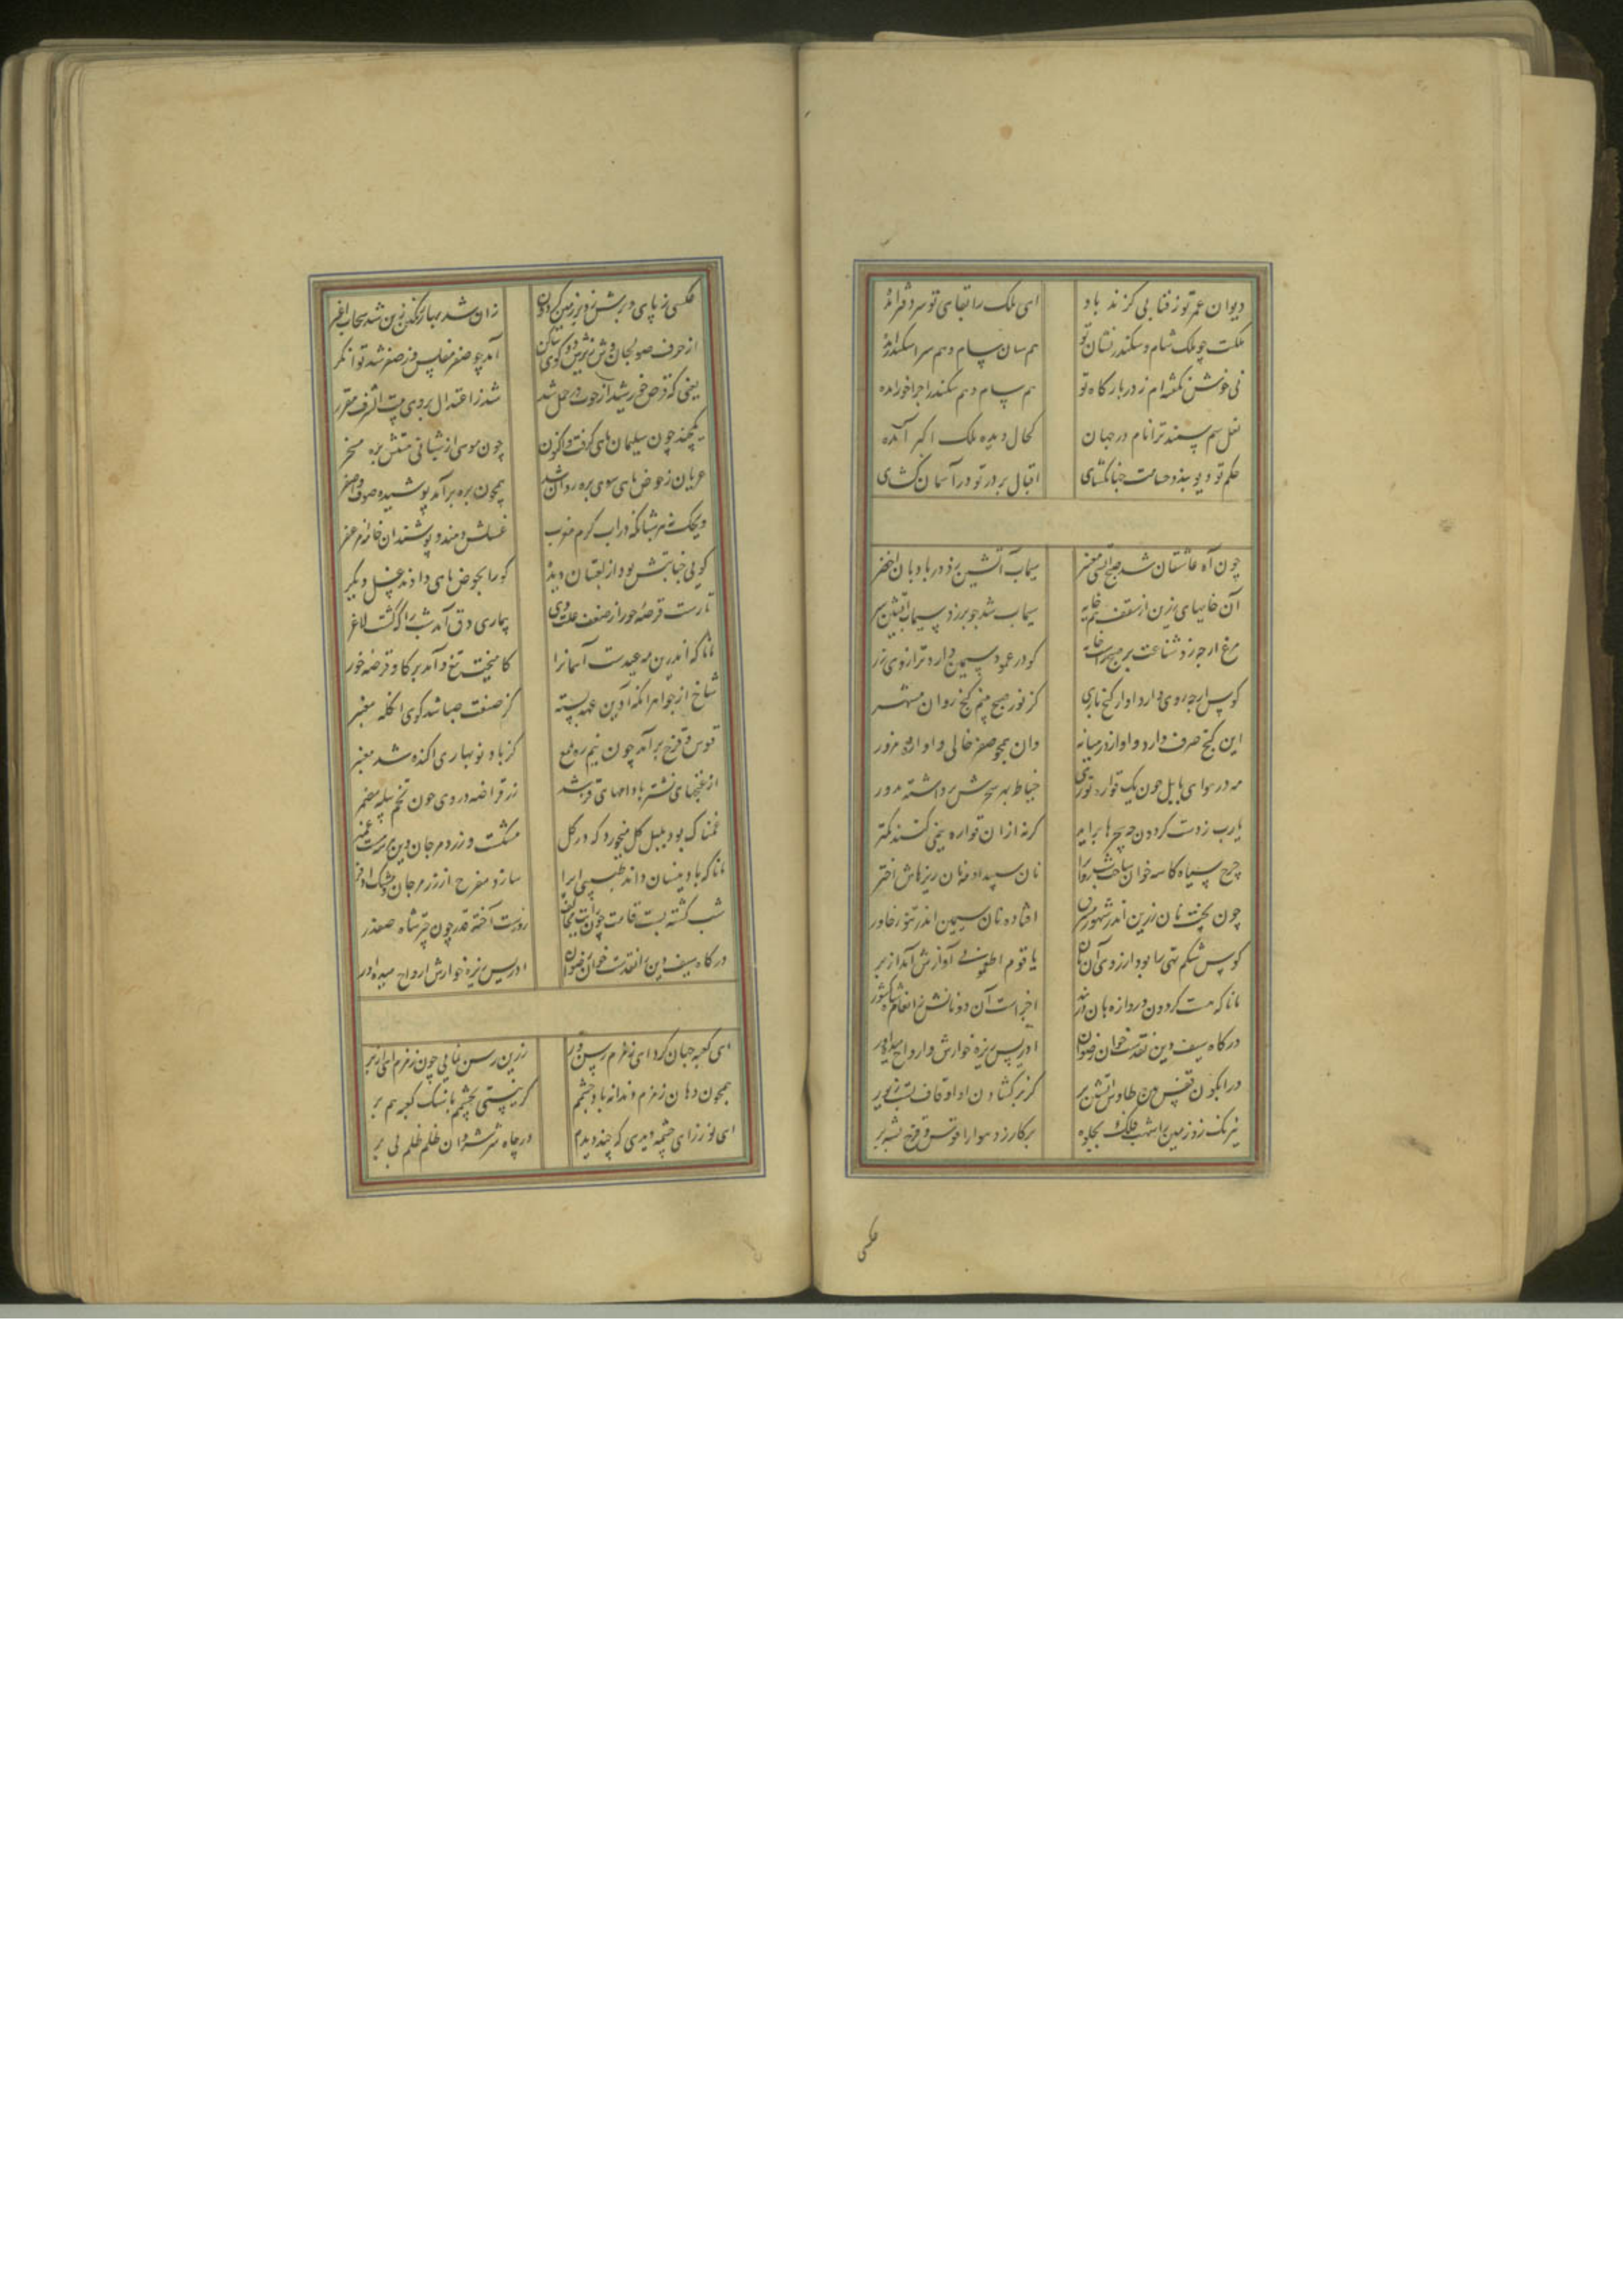 دیوان عمر تو ز فنا بی گزند باد ای ملک را بقای تو سر دفتر آمده
ملکت چو ملک سام و سکندر نشان تو هم سان سام و هم سر اسکندر آمده
نی خوش نکفته‌ام ز در بارکاه تو هم سام و هم سکندر اجرا خور آمده
نعل سم سمند ترا نام در جهان کحال دیده ملک اکبر آمده
حکم تو دیو بند و حسامت جهانکشای اقبال بر در تو در آسمان کشای
چون آه عاشقان شد صبح آتشی معنبر سیماب آتشین زد در بادبان اخضر
آن خایهای زرین از سقف نیم خایه سیماب شد چو بر زد سیماب آتشین سر
مرغ از چه زد شناعت بر صبح راست خانه کو در عمود سیمین دارد ترازوی زر
کوس از چه روی دارد آواز گنج بازی کز نور صبح بینم گنج روان مشهر
این گنج صرف دارد و آواز در میانه وان همچو صفر خالی و آوازه مزور
مه در هوای بابل چون یک قواره توزی خیاط بهر سحرش برداشته مدور
یارب ز دست گردون چه سحرها برآید گر نه از آن قواره نیمی کنند کمتر
چرخ سیاه کاسه خوان ساخت شب‌روان را نان سپید او مه نان ریزهاش اختر
چون پخت نان زرین اندر تنور مشرق افتاده نان سیمین اندر تنور خاور
کوس شکم تهی را بود آرزوی آن نان یا قوم اطعمونی آوازش آمد از بر
مانا که هست گردون دروازه بان در بند اجریست آن دو نانش ز انعام شاه کشور
درگاه سیف دین نقدست خوان رضوان ادریس ریزه خوارش و ارواح میده‌آور
در آبگون قفس بین طاوس آتشین پر کز پر گشادن او آفاق بست زیور
نیرنگ زد زمین را شهب فلک بجلوه پرکار زد هوا را قوس قزح بشهپر
عکسی
عکسی ز پای و پرش زد بر زمین و گردون زان شد بهار رنگین زین شد سحاب اغبر
از حرف صولجان وش زیرش دو گوی ساکن آمد چو صفر مفلس وز صفر شد توانگر
یعنی که قرص خورشید از حوت در حمل شد شد ز اعتدال بر وی بیت الشرف مقرر
یکچند چون سلیمان ماهی گرفت و اکنون چون موسی از شبانی هستش بره مسخر
عریان ز حوض ماهی سوی بره روان شد همچون بره برآمد پوشیده صوف اصفر
گویی جنابتش بود از لعبتان دیده کو را بحوض ماهی دادند غسل دیگر
تا رست قرصه خور از ضعف علت دی بیماری دق آمد شب را که گشت لاغر
مانا که اندرین مه عیدست آسمانرا کاهیخت تیغ و آمد بر گاو قرصه خور
شاخ از جواهر اینک آذین عید بسته کز صنعت صبا شد گوی انگله معنبر
قوس و قزح برآمد چون نیم زه ملمع کز باد نوبهاری آکنده شد معنبر
از غنچهای نشتر بادامهای تر شد زر قراضه در وی چون تخم پیله مضمر
غمناک بود بلبل گل میخورد که در گل مشکست و زر و مرجان وین هر سه هست غمبر
مانا که باد نیسان داند طبیبی ایرا سازد مفرح از زر مرجان و مشک اذفر
شب گشته پست قامت چون رایت مخالف روزست آخته قد چون چتر شاه صفدر
درگاه سیف دین را نقدست خوان رضوان ادریس ریزه خوارش ارواح میده‌آور
ای کعبه جهان گرد ای زمزم رسن‌ور زرین رسن نمایی چون زمزم آیی از بر
همچون دهان زمزم دندانه باد چشمم گر نیستی بچشمم با سنگ کعبه هم بر